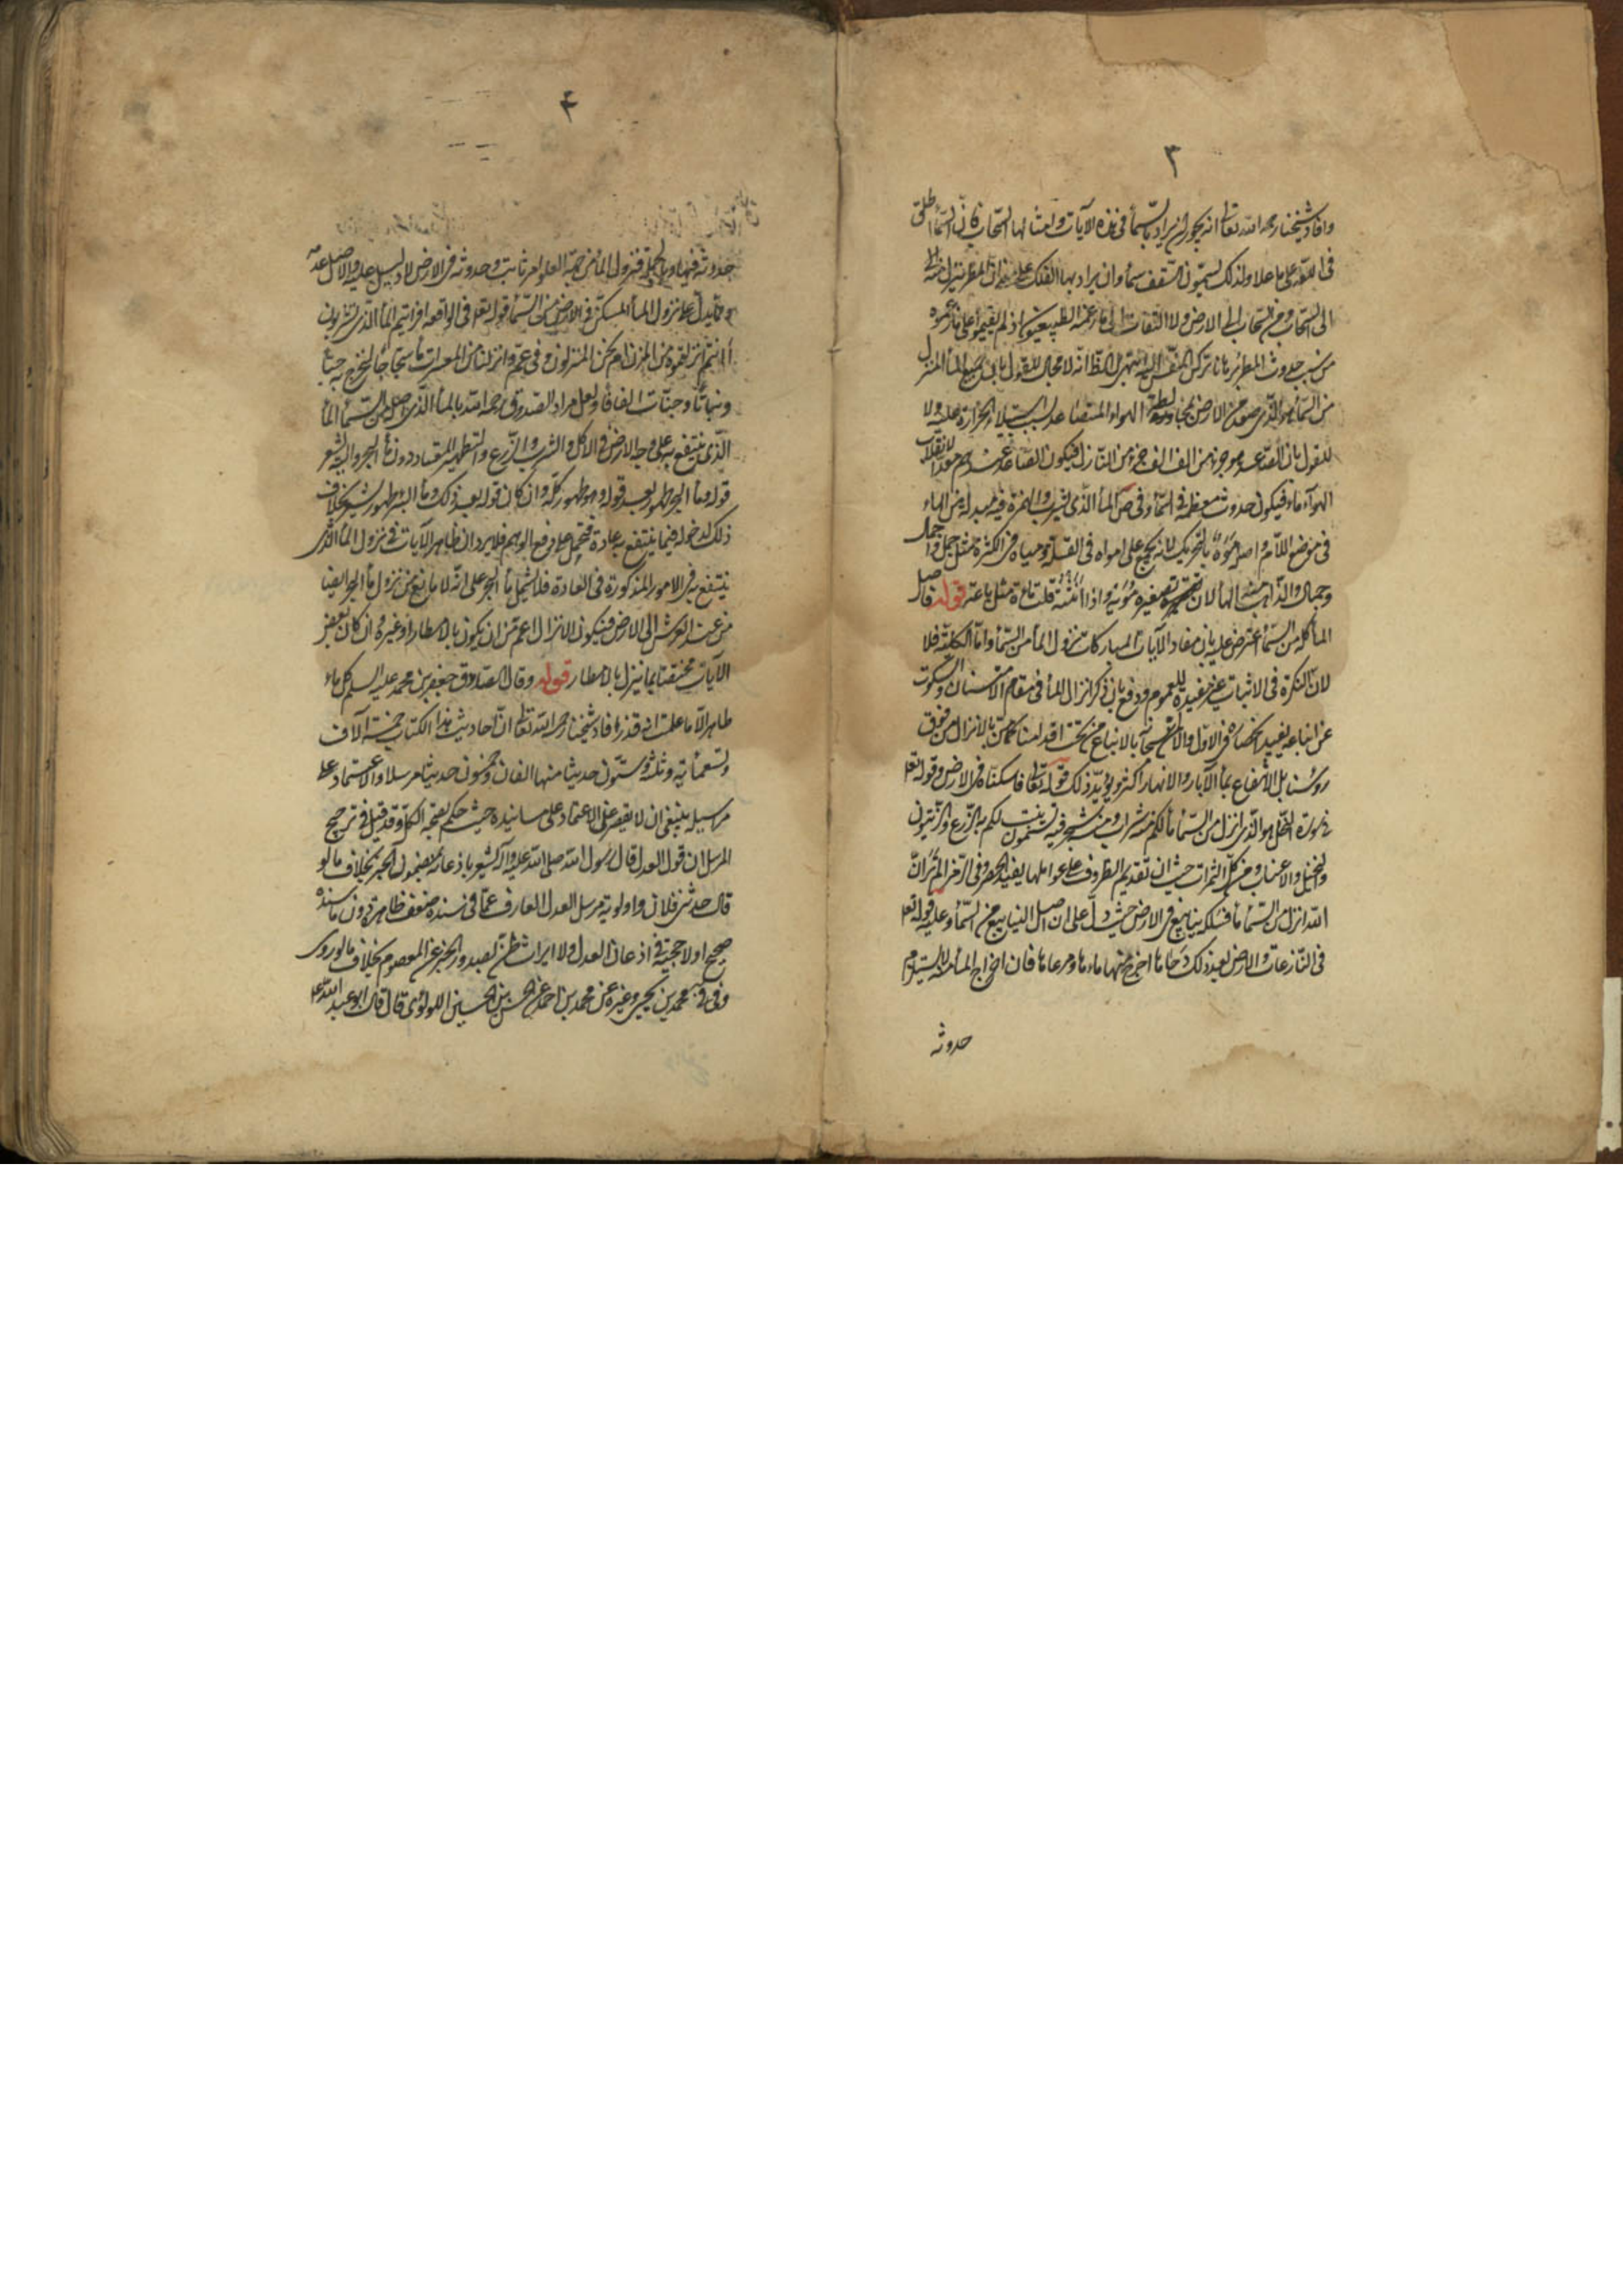 ٣
وافاد شيخنا رحمه الله تعالى انه يجوز ان يراد بالسماء فى هذه الآيات وامثالها السحاب فان السماء يطلق
فى اللغة على ما علا ولذلك يسمون السقف سماء وان يراد بها الفلك على معنى ان المطر ينزل منه
الى السحاب ومن السحاب الى الارض ولا التفات الى ما زعمه الطبيعيون اذ لم يقيموا على ما زعموه
من سبب حدوث المطر برهانا تركن النفس اليه انتهى الظ انه لا مجال للقول بان جميع الماء المنزل
من السماء هو الذى صعد من الارض الهواء المتصاعد بسبب استيلاء الحرارة عليه ولا
للقول بان الصاعد هو جزء من الف الف جزء من النازل فيكون الصاعد عندهم معدا لانقلاب
الهواء ماء فيكون حدوث معظمه فى السماء وفى ص الماء الذى يشرب والهمزة فيه مبدلة من الهاء
فى موضع اللام واصله موه بالتحريك لانه يجمع على امواه فى القلة ومياه فى الكثرة مثل جمل واجمال
وجمال والذاهب منه الهاء لان تصغيره مويه واذا انثته قلت ماءة مثل ماعة قوله فاصل
الماء كله من السماء اعترض عليه بان مفاد الآيات المباركات نزول الماء من السماء واما الكلية فلا
لان النكرة فى الاثبات غير مفيدة للعموم ودفع بان ذكر انزال الماء فى مقام الامتنان والسكوت
عن انباعه يفيد انحصاره فى الاول والا بالانباع من تحت اقدامنا كما من بالانزال من فوق
رؤسنا بل الانتفاع بماء الآبار والانهار اكثر ويؤيد ذلك قوله تعالى فاسكناه فى الارض وقوله تعالى
فى سورة النحل هو الذى انزل من السماء ماء لكم منه شراب ومنه شجر فيه تسيمون ينبت لكم به الزرع والزيتون
والنخيل والاعناب ومن كل الثمرات حيث ان تقديم الظروف على عواملها يفيد الحصر وفى الزمر الم تر ان
الله انزل من السماء ماء فسلكه ينابيع فى الارض حيث دل على ان اصل الينابيع من السماء وعليه قوله تعالى
فى النازعات والارض بعد ذلك دحاها اخرج منها ماءها ومرعاها فان اخراج الماء منه لا يستلزم
حدوثه
۴
حدوثه فيها وبالجملة فنزول الماء من جهة العلو امر ثابت وحدوثه فى الارض لا دليل عليه والاصل عدمه
ومما يدل على نزول الماء المسكن فى الارض من السماء قوله تعالى فى الواقعة افرأيتم الماء الذى تشربون
أأنتم انزلتموه من المزن ام نحن المنزلون وفى عم وانزلنا من المعصرات ماء ثجاجا لنخرج به حبا
ونباتا وجنات الفافا ولعل مراد الصدوق رحمه الله بالماء الذى اصله من السماء الماء
الذى ينتفع به على وجه الارض فى الاكل والشرب والزرع والتطهير المعتاد دون ماء البحر واليه يشعر
قوله وماء البحر طهور بعد قوله وهو طهور كله وان كان قوله بعد ذلك وماء البئر طهور يشعر بخلاف
ذلك لدخوله فيما ينتفع به عادة فيحمل على رفع الوهم فلا يرد ان ظاهر الآيات فى نزول الماء الذى
ينتفع به فى الامور المذكورة فى العادة فلا يشمل ماء البحر على انه لا مانع من نزول ماء البحر ايضا
من عند العرش الى الارض فيكون الانزال اعم من ان يكون بالامطار او غيره وان كان بعض
الآيات مختصا بما ينزل بالامطار قوله وقال الصادق جعفر بن محمد عليه السلام كل ماء
طاهر الا ما علمت انه قذر افاد شيخنا رحمه الله تعالى ان احاديث هذا الكتاب خمسة آلاف
وتسعمائة وثلثة وستون حديثا منها الفان وخمسون حديثا مرسلا والاعتماد على
مراسيله ينبغى ان لا يقصر عن الاعتماد على مسانيده حيث حكم بصحة الكل وقد قيل فى ترجيح
المرسل ان قول العدل قال رسول الله صلى الله عليه وآله يشعر باذعانه بمضمون الخبر بخلاف ما لو
قال حدثنى فلان واولوية مرسل العدل العارف عما فى سنده ضعف ظاهرة دون ما سنده
صحيح او لا حجية فى اذعان العدل ولا ايراث ظن لصدور الخبر عن المعصوم بخلاف ما لو روى
وفى فى محمد بن يحيى وغيره عن محمد بن احمد عن الحسن بن الحسين اللولؤى قال قال ابو عبد الله ع